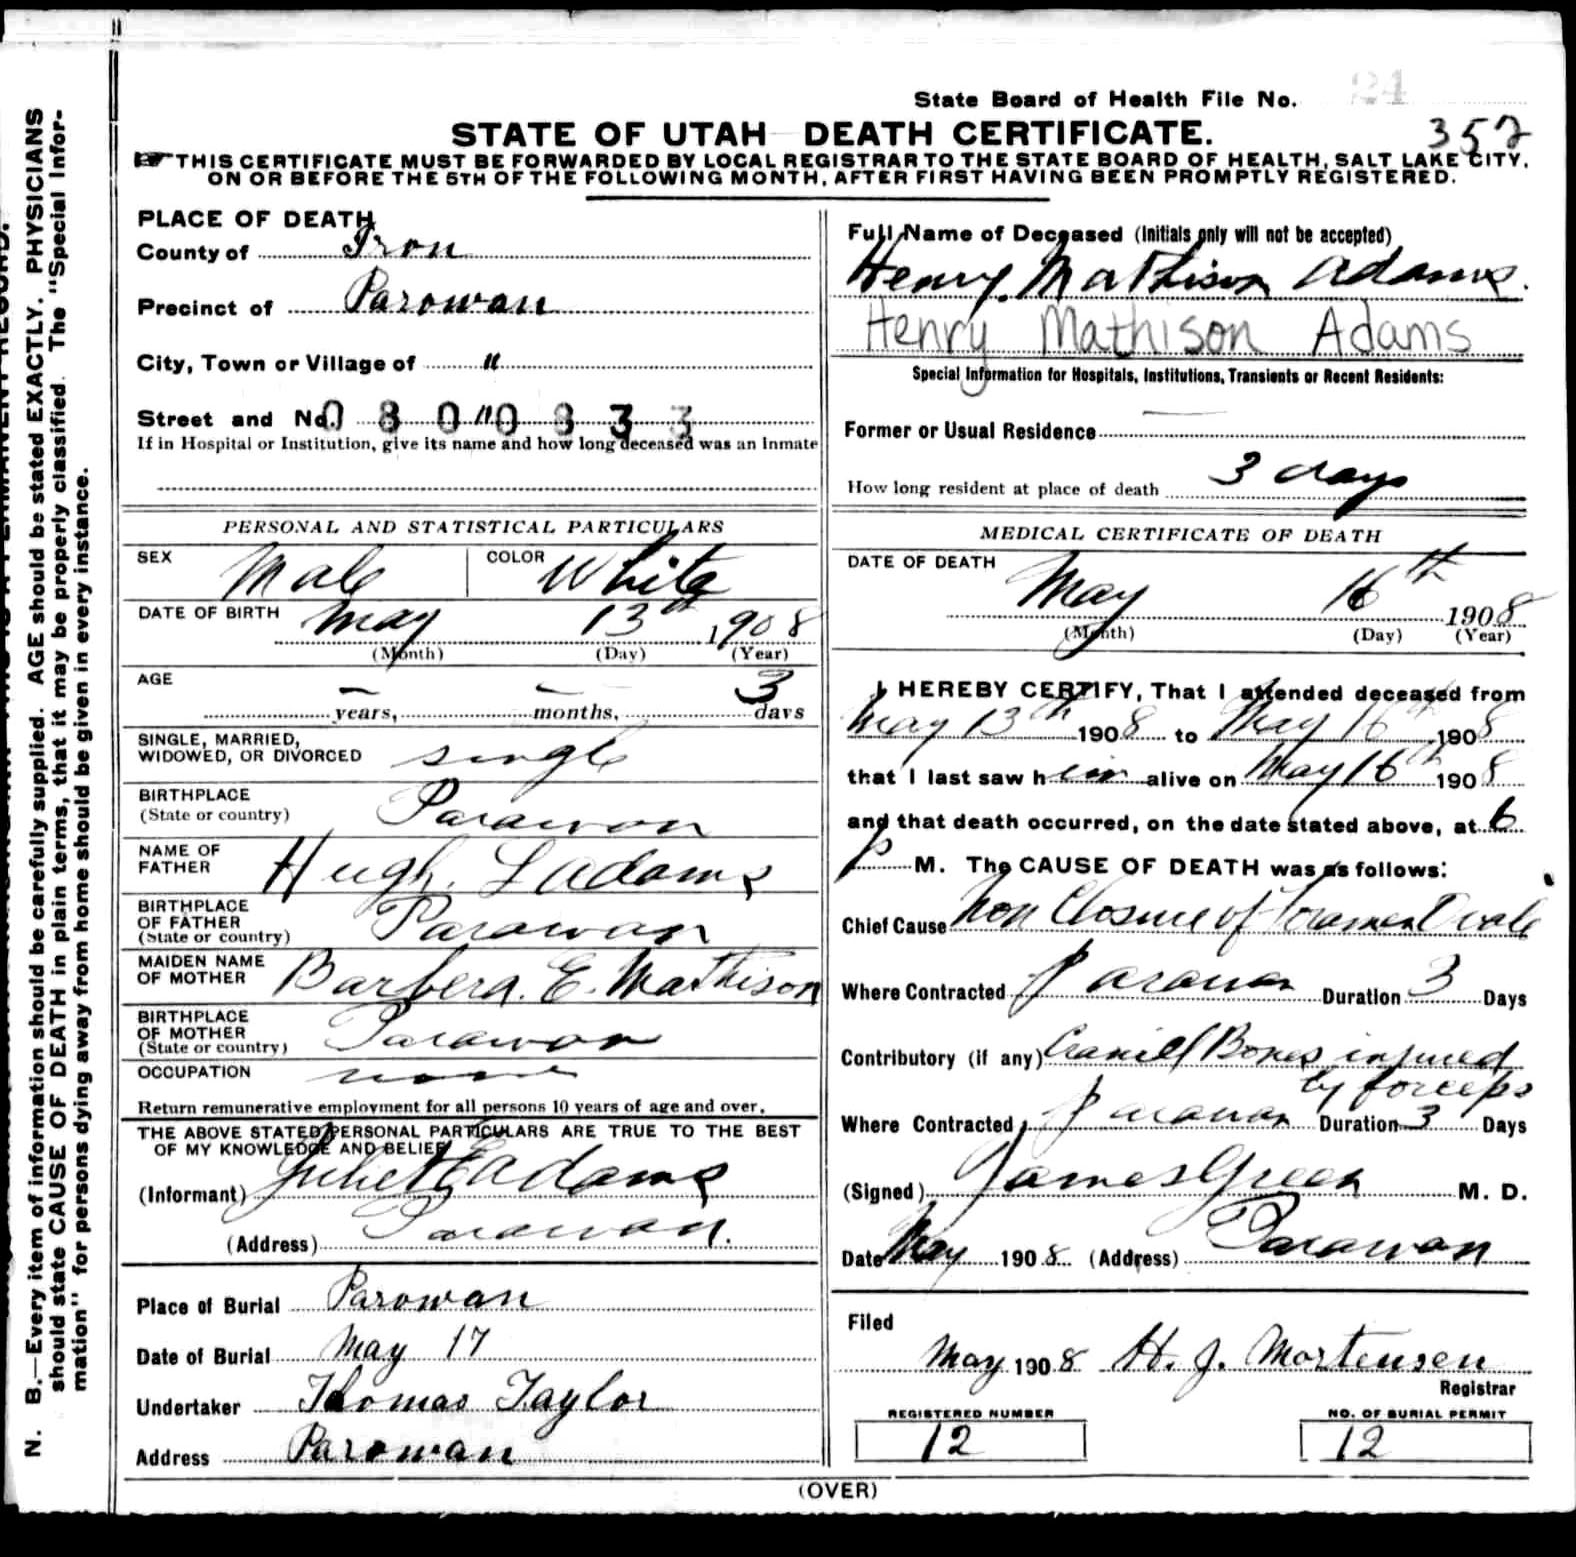 State Board of Health File No. 24
STATE OF UTAH DEATH CERTIFICATE. 357
THIS CERTIFICATE MUST BE FORWARDED BY LOCAL REGISTRAR TO THE STATE BOARD OF HEALTH, SALT LAKE CITY,
ON OR BEFORE THE 5TH OF THE FOLLOWING MONTH, AFTER FIRST HAVING BEEN PROMPTLY REGISTERED.
N. B.—Every item of information should be carefully supplied. AGE should be stated EXACTLY. PHYSICIANS
should state CAUSE OF DEATH in plain terms, that it may be properly classified. The "Special Infor-
mation" for persons dying away from home should be given in every instance.
PLACE OF DEATH
County of Iron
Precinct of Parowan
City, Town or Village of "
Street and No. " 0 8 0 0 8 3 3
If in Hospital or Institution, give its name and how long deceased was an Inmate
PERSONAL AND STATISTICAL PARTICULARS
SEX Male COLOR White
DATE OF BIRTH May 13th 1908
(Month) (Day) (Year)
AGE — years, — months, 3 days
SINGLE, MARRIED,
WIDOWED, OR DIVORCED single
BIRTHPLACE
(State or country) Parawon
NAME OF
FATHER Hugh. L Adams
BIRTHPLACE
OF FATHER
(State or country) Parawan
MAIDEN NAME
OF MOTHER Barbera. E. Mathison
BIRTHPLACE
OF MOTHER
(State or country) Parawon
OCCUPATION none
Return remunerative employment for all persons 10 years of age and over.
THE ABOVE STATED PERSONAL PARTICULARS ARE TRUE TO THE BEST
OF MY KNOWLEDGE AND BELIEF
(Informant) Adams
(Address) Parawan.
Place of Burial Parowan
Date of Burial May 17
Undertaker Thomas Taylor
Address Parowan
Full Name of Deceased (Initials only will not be accepted)
Henry. Mathison Adams.
Henry Mathison Adams
Special Information for Hospitals, Institutions, Transients or Recent Residents:
Former or Usual Residence —
How long resident at place of death 3 days
MEDICAL CERTIFICATE OF DEATH
DATE OF DEATH May 16th 1908
(Month) (Day) (Year)
I HEREBY CERTIFY, That I attended deceased from
May 13th 1908 to May 16th 1908
that I last saw him alive on May 16th 1908
and that death occurred, on the date stated above, at 6
p M. The CAUSE OF DEATH was as follows:
Chief Cause Non Closure of Foramen Ovale
Where Contracted Parawan Duration 3 Days
Contributory (if any) Bones injured
by forceps
Where Contracted Parawan Duration 3 Days
(Signed) James Green M. D.
Date May 1908 (Address) Parawan
Filed
May 1908 H. J. Mortensen
Registrar
REGISTERED NUMBER
12
NO. OF BURIAL PERMIT
12
(OVER)